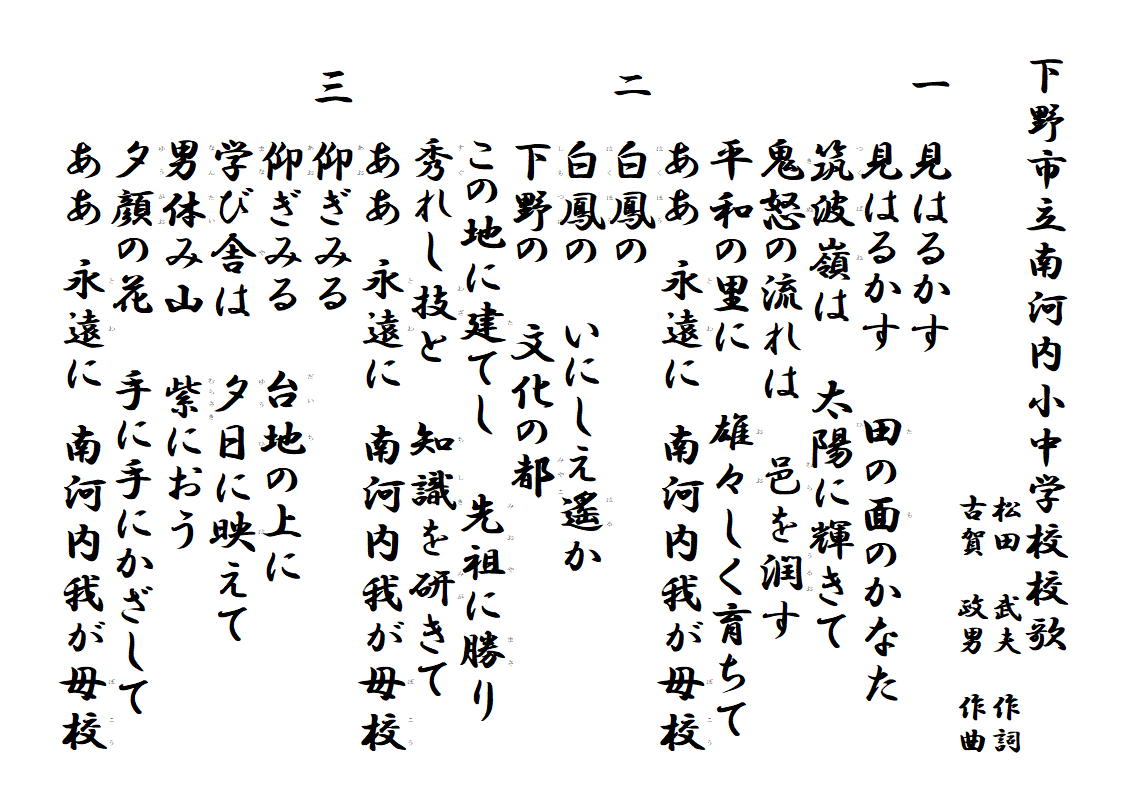 下野市立南河内小中学校校歌
松田　武夫　作詞
古賀　政男　作曲
一
見はるかす
見はるかす　田の面のかなた
筑波嶺は　太陽に輝きて
鬼怒の流れは　邑を潤す
平和の里に　雄々しく育ちて
ああ　永遠に　南河内我が母校
二
白鳳の
白鳳の　いにしえ遥か
下野の　文化の都
この地に建てし　先祖に勝り
秀れし技と　知識を研きて
ああ　永遠に　南河内我が母校
三
仰ぎみる
仰ぎみる　台地の上に
学び舎は　夕日に映えて
男体み山　紫におう
夕顔の花　手に手にかざして
ああ　永遠に　南河内我が母校